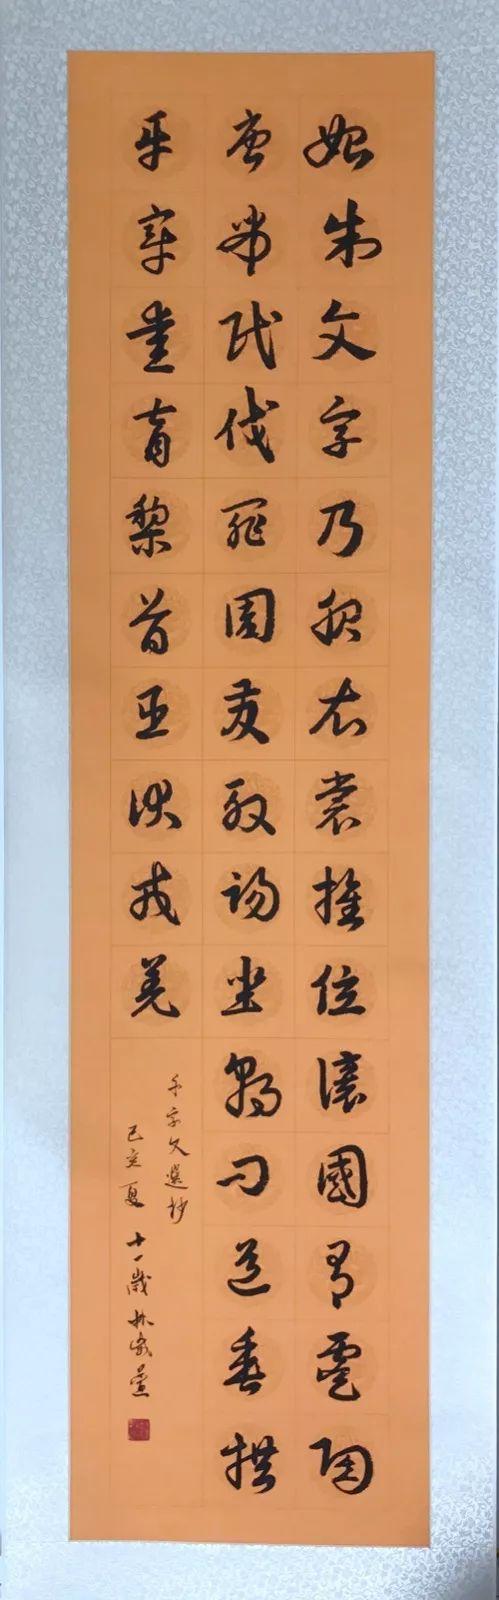 始制文字乃服衣裳推位讓國有虞陶
唐吊民伐罪周發殷湯坐朝問道垂拱
平章愛育黎首臣伏戎羌
千字文選抄
己亥夏 十一歲